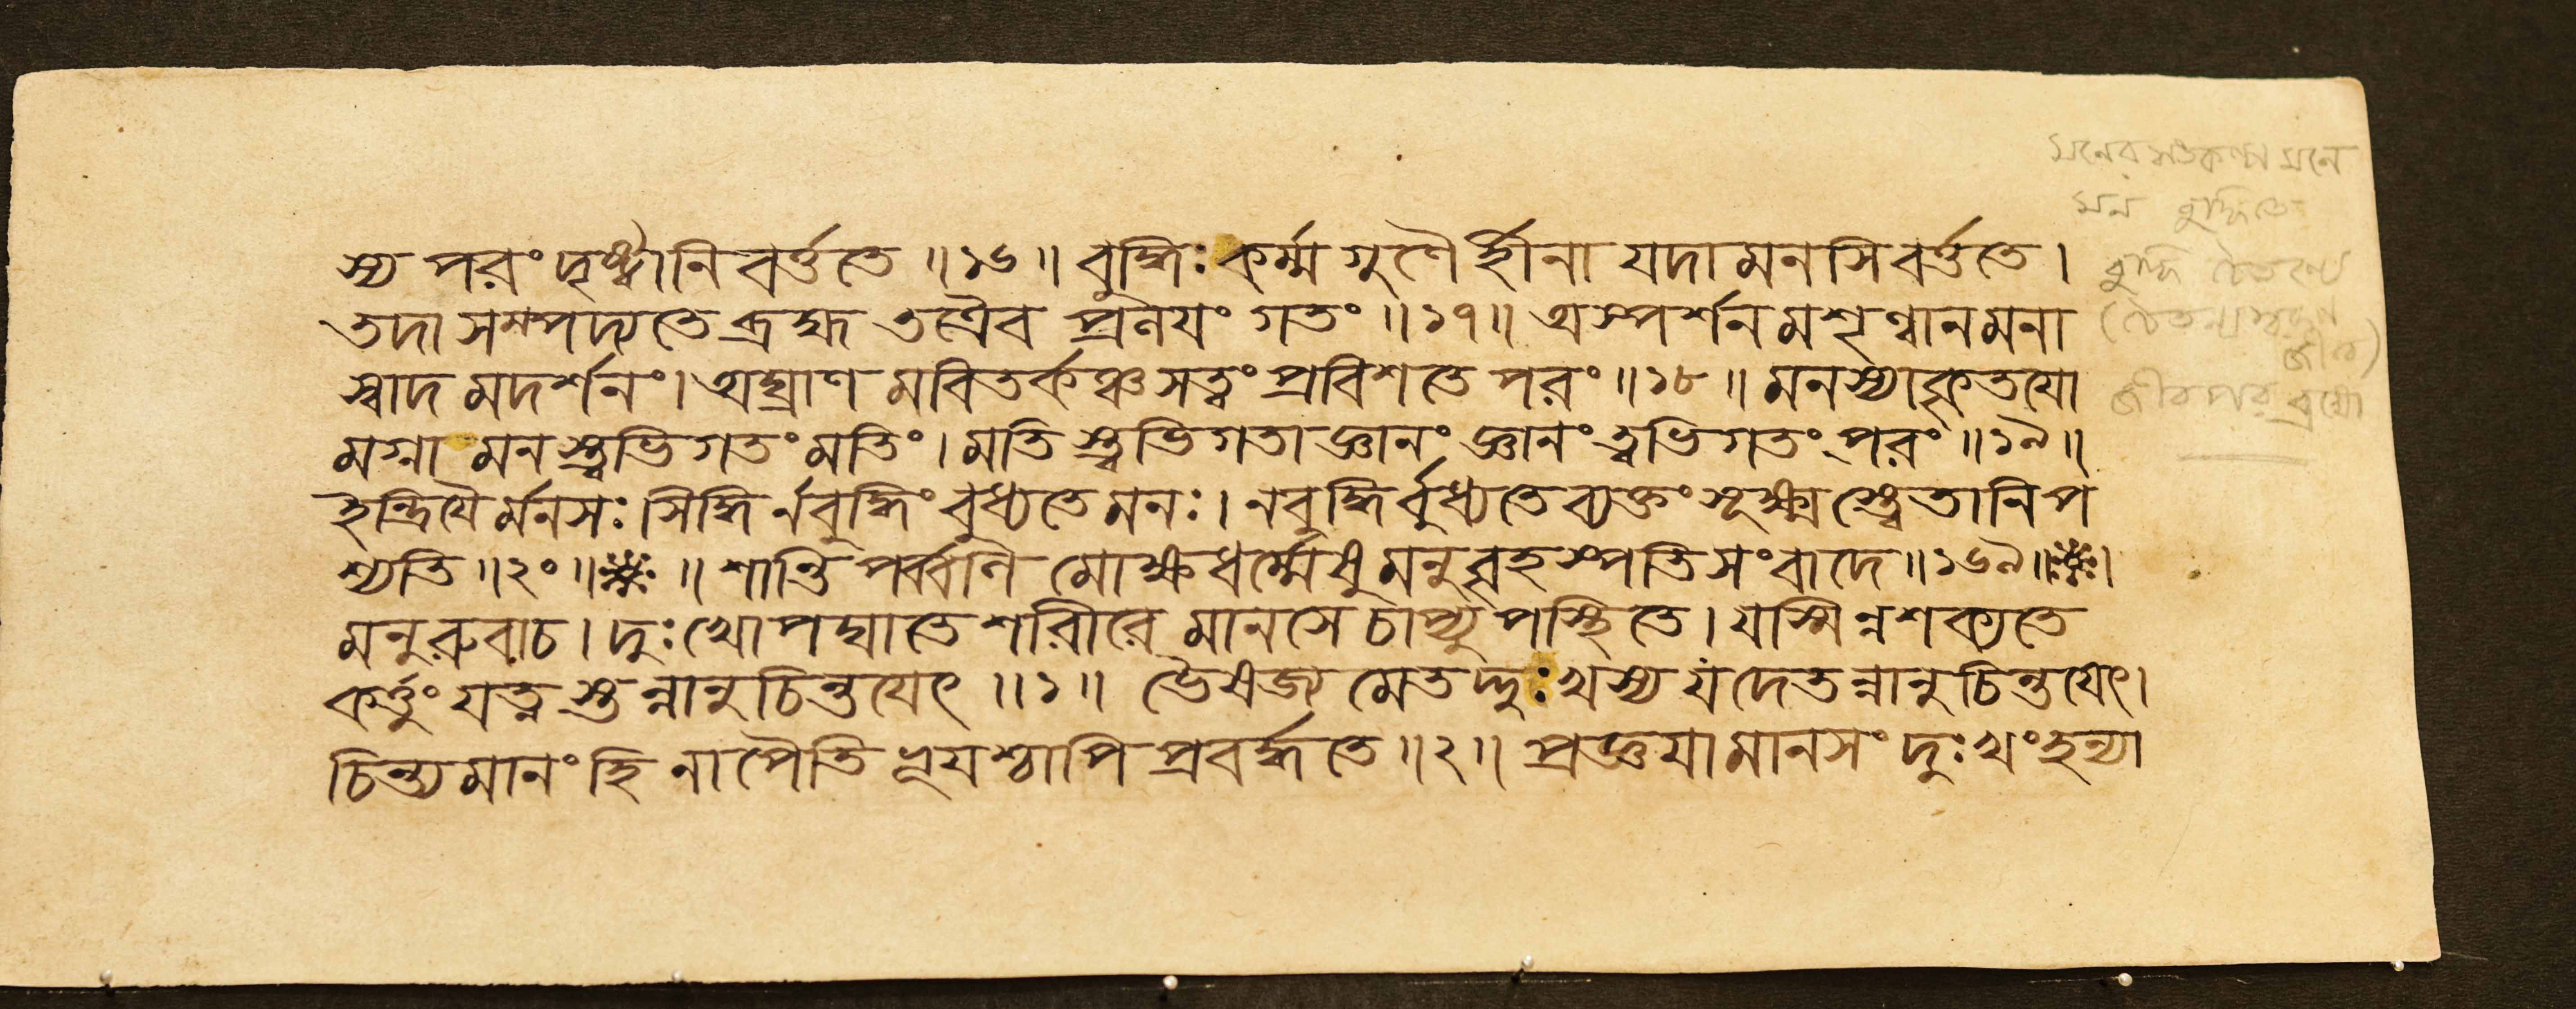 স্য পরং দৃষ্ট্বা নিবর্ত্ততে ॥১৬॥ বুদ্ধিঃ কর্ম্মগুণৈর্হীনা যদা মনসি বর্ত্ততে।
তদা সম্পদ্যতে ব্রহ্ম তত্রৈব প্রলয়ং গতং ॥১৭॥ অস্পর্শনমশৃণ্বানমনা
স্বাদমদর্শনং। অঘ্রাণমবিতর্কঞ্চ সত্বং প্রবিশতে পরং ॥১৮॥ মনস্যাকৃতয়ো
মগ্না মনস্ত্বভিগতং মতিং। মতিস্ত্বভিগতা জ্ঞানং জ্ঞানং ত্বভিগতং পরং ॥১৯॥
ইন্দ্রিয়ৈর্মনসঃ সিদ্ধির্নবুদ্ধিং বুধ্যতে মনঃ। নবুদ্ধির্বুধ্যতে ব্যক্তং সূক্ষ্মস্ত্বেতানি প
শ্যতি ॥২০॥ ॥ শান্তিপর্ব্বানি মোক্ষধর্ম্মেষু মনুবৃহস্পতিসংবাদে ॥১৬৯॥
মনুরুবাচ। দুঃখোপঘাতে শরীরে মানসে চাপ্যুপস্থিতে। যস্মিন্নশক্যতে
কর্ত্তুং যত্নস্তন্নানুচিন্তয়েৎ ॥১॥ ভৈষজ্যমেতদ্দুঃখস্য যদেতন্নানুচিন্তয়েৎ।
চিন্ত্যমানং হি নাপৈতি ভূয়শ্চাপি প্রবর্দ্ধতে ॥২॥ প্রজ্ঞয়া মানসং দুঃখং হন্যা
মনের মনে
মন বুদ্ধিতে
বুদ্ধি চৈতন্যে
জীব)
জীব ব্রহ্মে